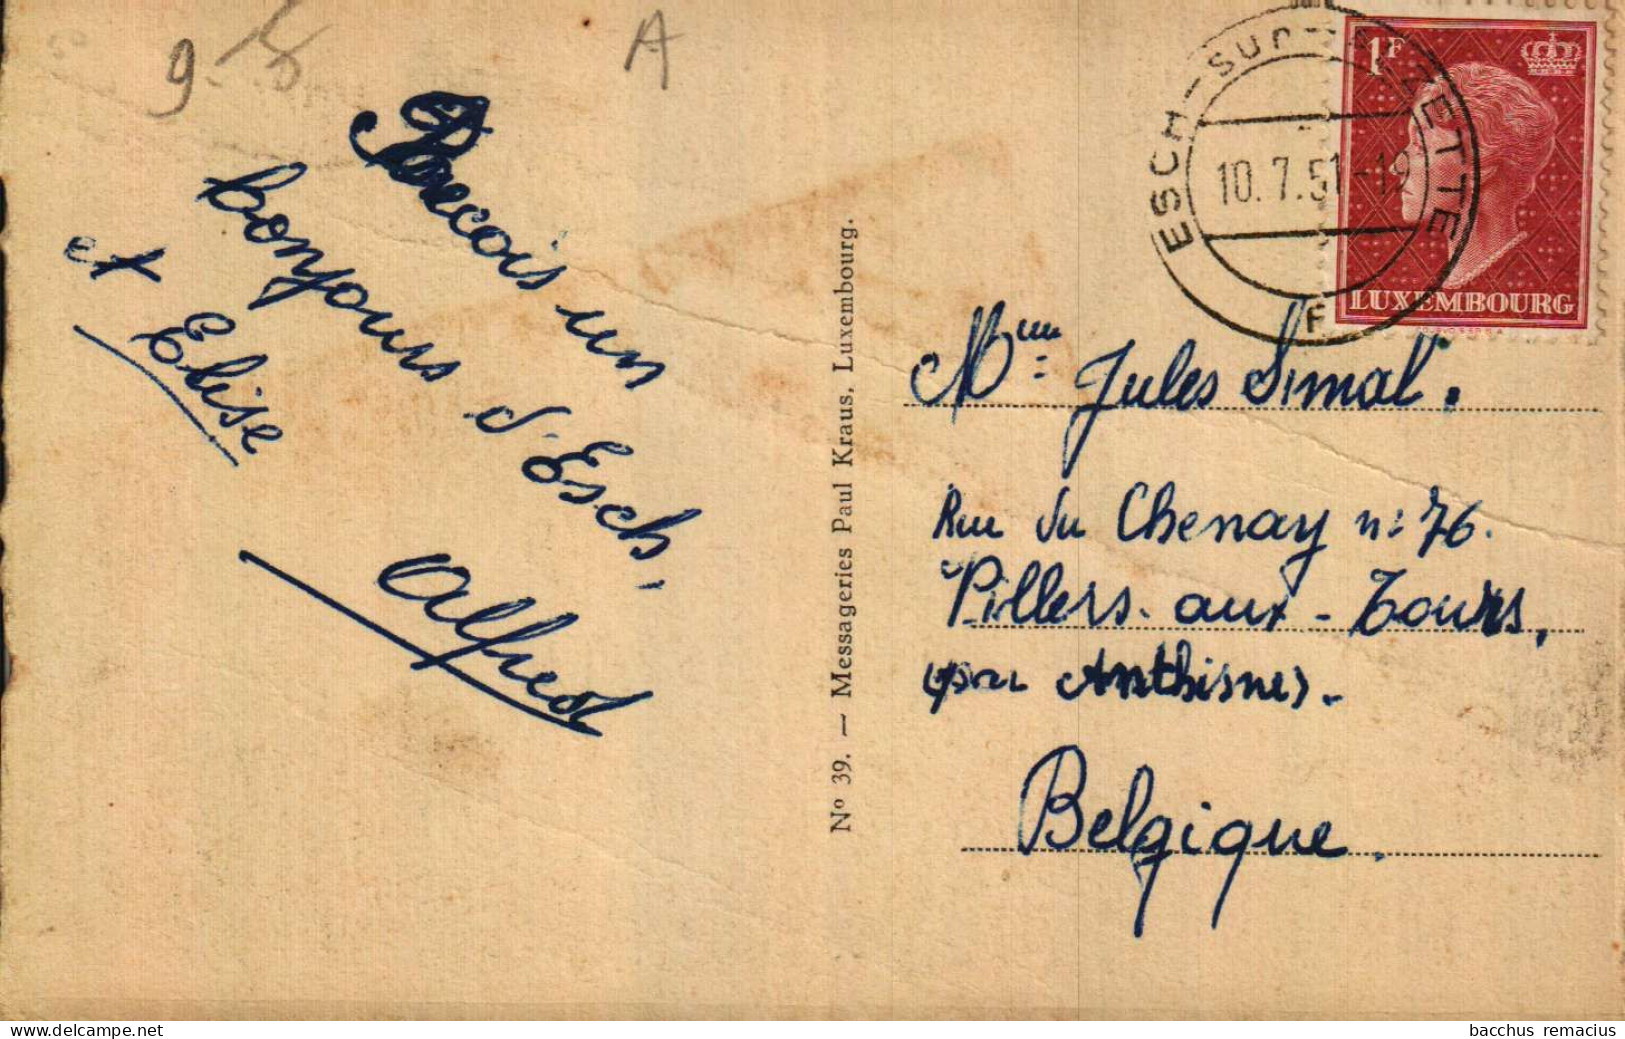 9
A
Recois un
bonjours d'Esch,
et Elise
Alfred
Nº 39. — Messageries Paul Kraus, Luxembourg.
ESCH-SUR-ALZETTE
10.7.51-19
F
1F
LUXEMBOURG
Mme: Jules Simal.
Rue du Chenay n: 76.
Pillers-aux-Tours,
par Anthisnes.
Belgique.
bacchus remacius
www.delcampe.net